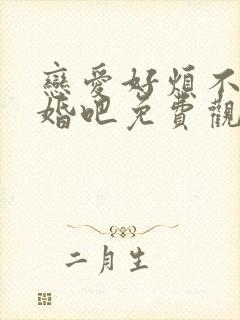 戀愛好煩不
婚吧免費觀
二月生